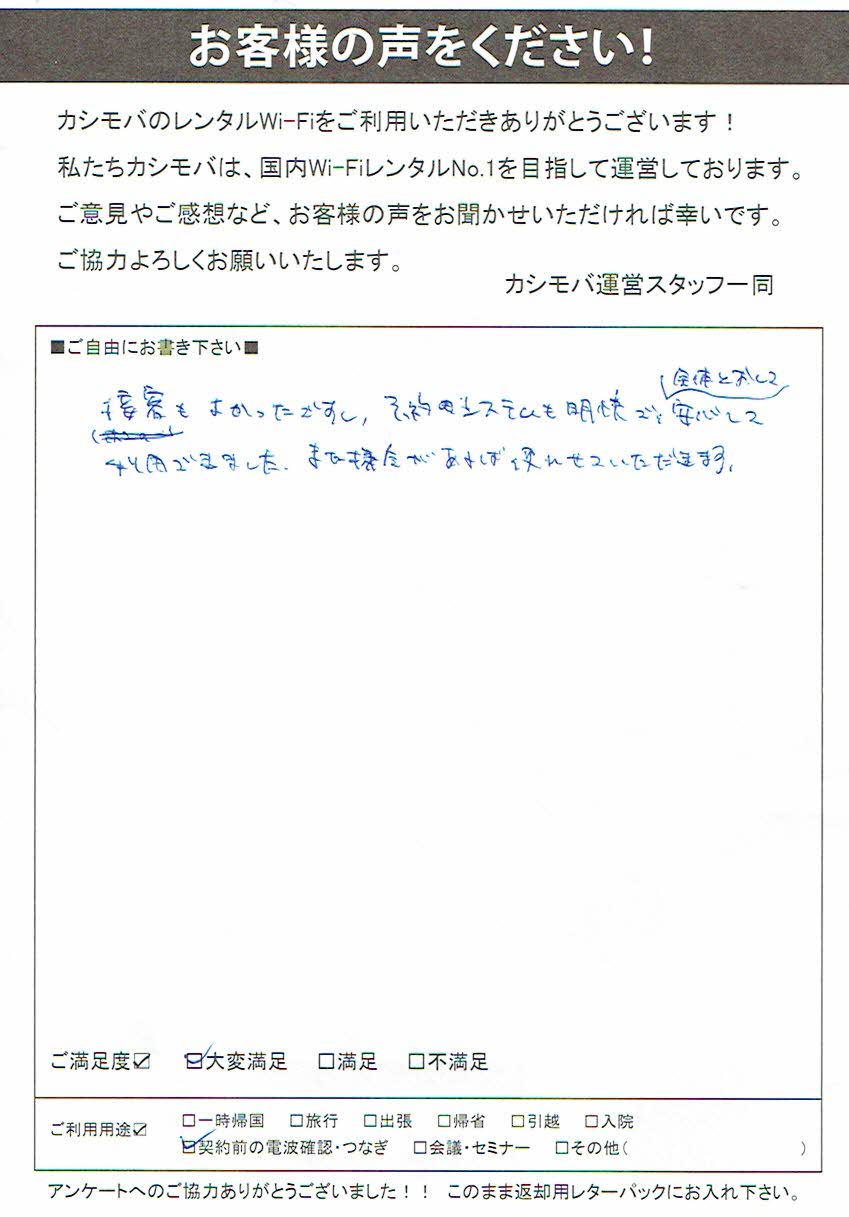 お客様の声をください!
カシモバのレンタルWi-Fiをご利用いただきありがとうございます！
私たちカシモバは、国内Wi-FiレンタルNo.1を目指して運営しております。
ご意見やご感想など、お客様の声をお聞かせいただければ幸いです。
ご協力よろしくお願いいたします。
カシモバ運営スタッフ一同
■ご自由にお書き下さい■
全体とおして
接客もよかったですし, システムも明快で 安心して
利用できました. また機会があれば使わせていただきます.
ご満足度☑ ☑大変満足 □満足 □不満足
ご利用用途☑ □一時帰国 □旅行 □出張 □帰省 □引越 □入院
☑契約前の電波確認・つなぎ □会議・セミナー □その他( )
アンケートへのご協力ありがとうございました！！ このまま返却用レターパックにお入れ下さい。